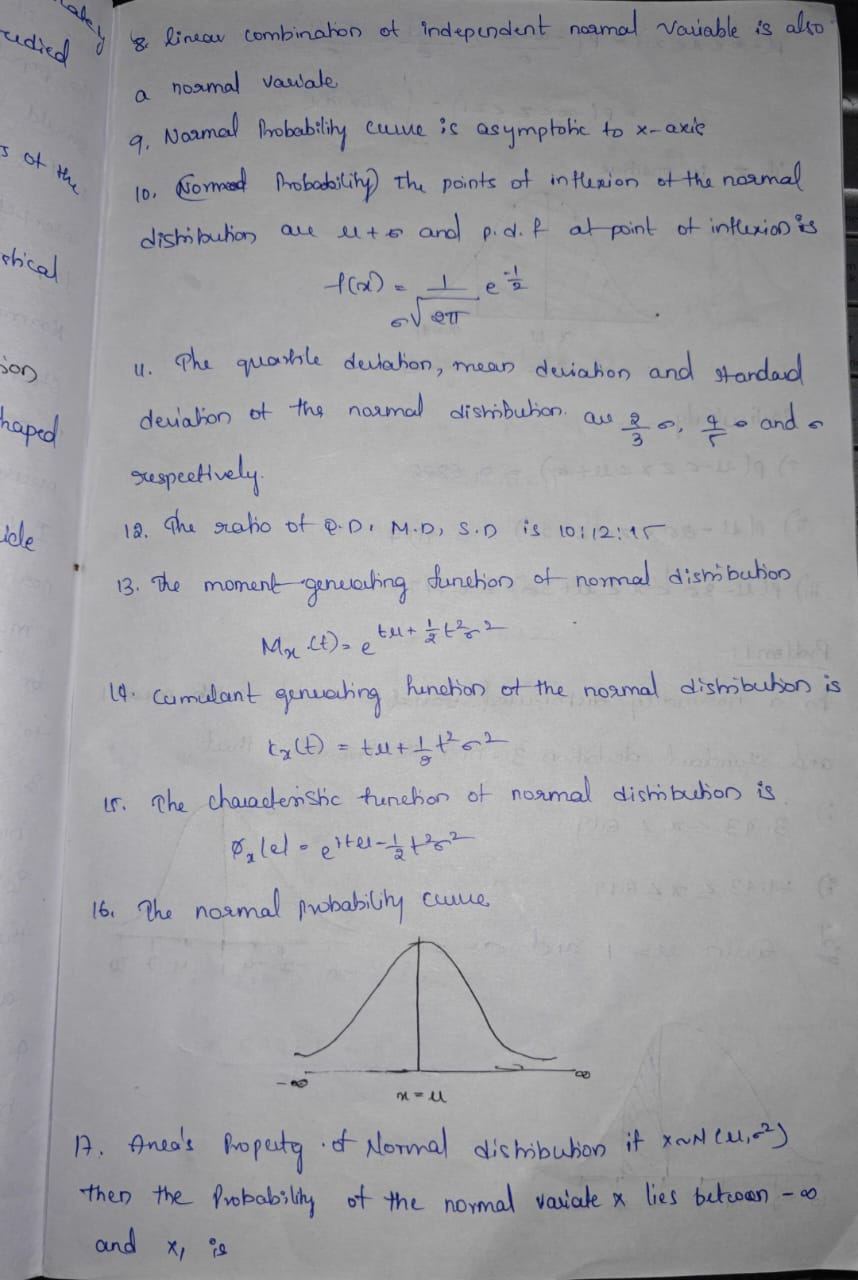 ately
udied
s of the
stical
ion
haped
icle
8. linear combination of independent normal variable is also
a normal variate
9. Normal Probability curve is asymptotic to x-axis
10. (Normal Probability) The points of inflexion of the normal
distribution are μ+σ and p.d.f at point of inflexion is
f(x) = 1/σ√2π e^-1/2
11. The quartile deviation, mean deviation and standard
deviation of the normal distribution. are 2/3 σ, 4/5 σ and σ
respectively.
12. The ratio of Q.D, M.D, S.D is 10:12:15
13. The moment generating function of normal distribution
Mx(t) = e^tμ+1/2 t²σ²
14. Cumulant generating function of the normal distribution is
kx(t) = tμ+1/2 t²σ²
15. The characteristic function of normal distribution is
Øx(t) = e^itμ-1/2 t²σ²
16. The normal probability curve
-∞ ∞
x=μ
17. Area's Property of Normal distribution if x~N(μ,σ²)
then the Probability of the normal variate x lies between -∞
and x₁ is